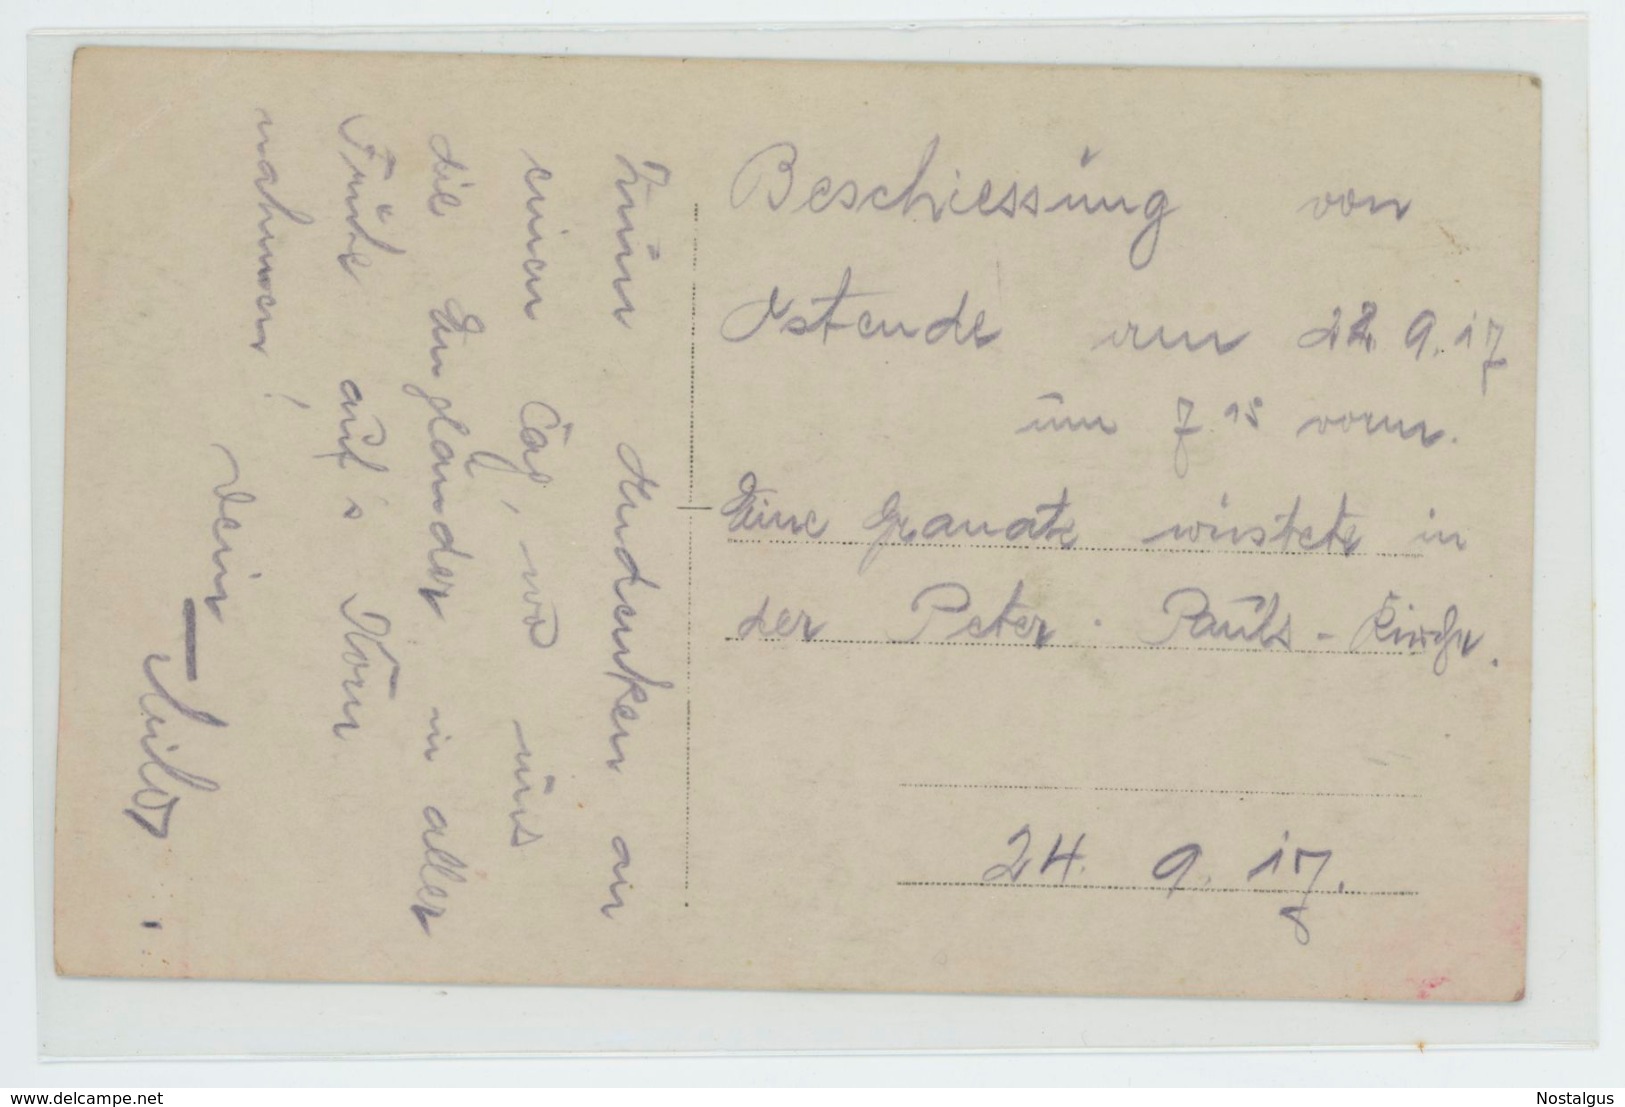 Beschiessung von
Ostende am 22. 9. 17
um 7 15 vorm.
Eine Granate wüstete in
der Peter-Pauls-Kirche.
24. 9. 17.
Zum Andenken an
einen Tag, wo uns
die Engländer in aller
Frühe auf's Korn
nahmen!
Dein
delcampe.net
Nostalgus